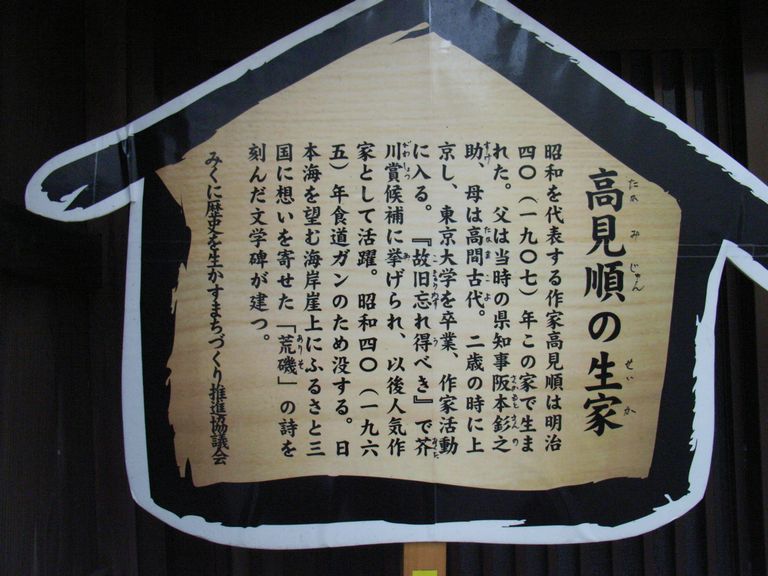 高見順の生家
昭和を代表する作家高見順は明治
四〇（一九〇七）年この家で生ま
れた。父は当時の県知事阪本釤之
助、母は高間古代。二歳の時に上
京し、東京大学を卒業、作家活動
に入る。『故旧忘れ得べき』で芥
川賞候補に挙げられ、以後人気作
家として活躍。昭和四〇（一九六
五）年食道ガンのため没する。日
本海を望む海岸崖上にふるさと三
国に想いを寄せた「荒磯」の詩を
刻んだ文学碑が建つ。
みくに歴史を生かすまちづくり推進協議会